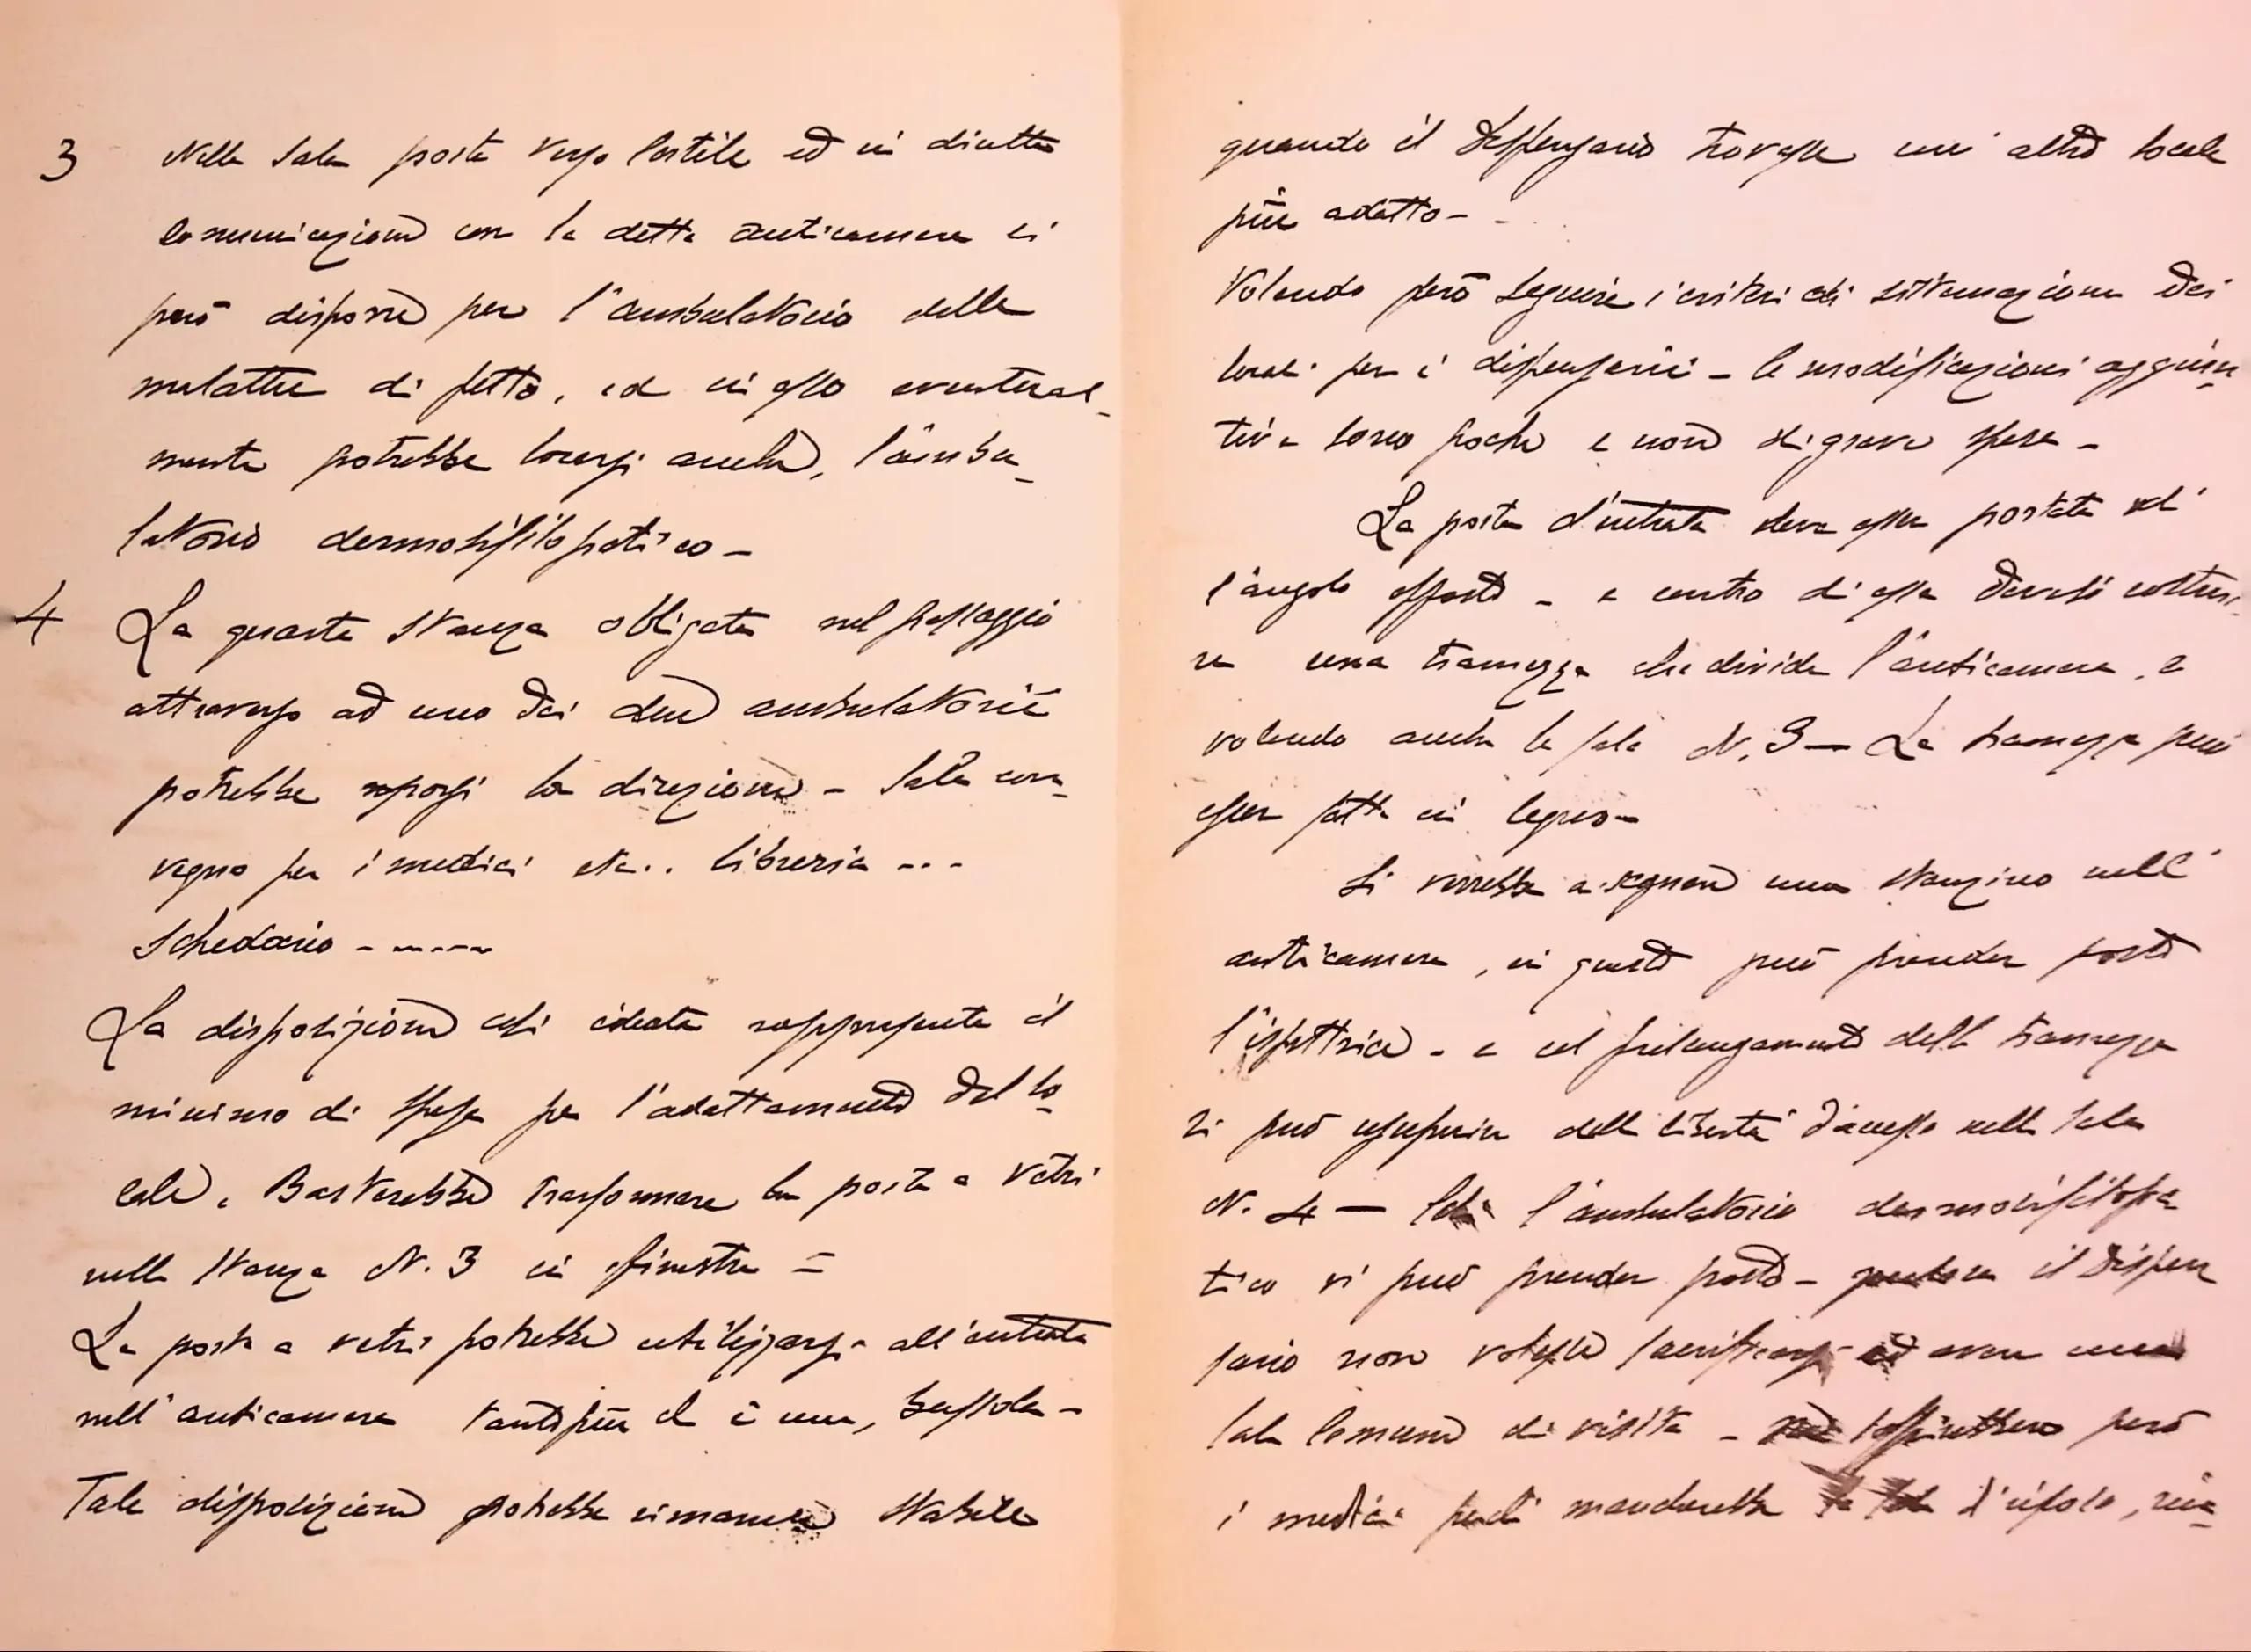 3 Nella sala posta verso Cortile ed in diretta
comunicazione con la detta anticamera si
può disporre per l'ambulatorio delle
malattie di petto, ed in esso eventual-
mente potrebbe locarsi anche, l'ambu-
latorio dermosifilopatico -
4 La quarta stanza obligata nel passaggio
attraverso ad uno dei due ambulatorii
potrebbe la direzione - Sala con-
vegno per i medici etc.. libreria ...
Schedario - -----
La disposizione così ideata rappresenta il
minimo di spesa per l'adattamento del lo-
cale. Basterebbe trasformare la porta a vetri
nella stanza N. 3 in finestra =
La porta a vetri potrebbe utilizzarsi all'entrata
nell'anticamera tantopiù è una, bussola -
Tale disposizione potrebbe rimanere stabile
quando il dispensario trovasse un'altro locale
più adatto -
Volendo però seguire i criteri di sistemazione dei
locali per i dispensarii - le modificazioni aggiun-
tive sono poche e non di grave spesa -
La porta d'entrata deve esser portata
l'angolo opposto - e contro di essa devesi costrui-
re una tramezza che divide l'anticamera, e
volendo anche la sala N. 3 - La tramezza può
esser fatta in legno -
Si verrebbe a segnare uno stanzino nell'
anticamera, in questo può prender posto
l'ispettrice - e col prolungamento della tramezza
si può usufruire della libertà d'accesso nella sala
N. 4 - l'ambulatorio dermosifilopa
tico vi può prender posto - il dispen
sario non volesse sacrificarsi ad aver una
sala Comune di visita - però
i medici mancherebbe d'